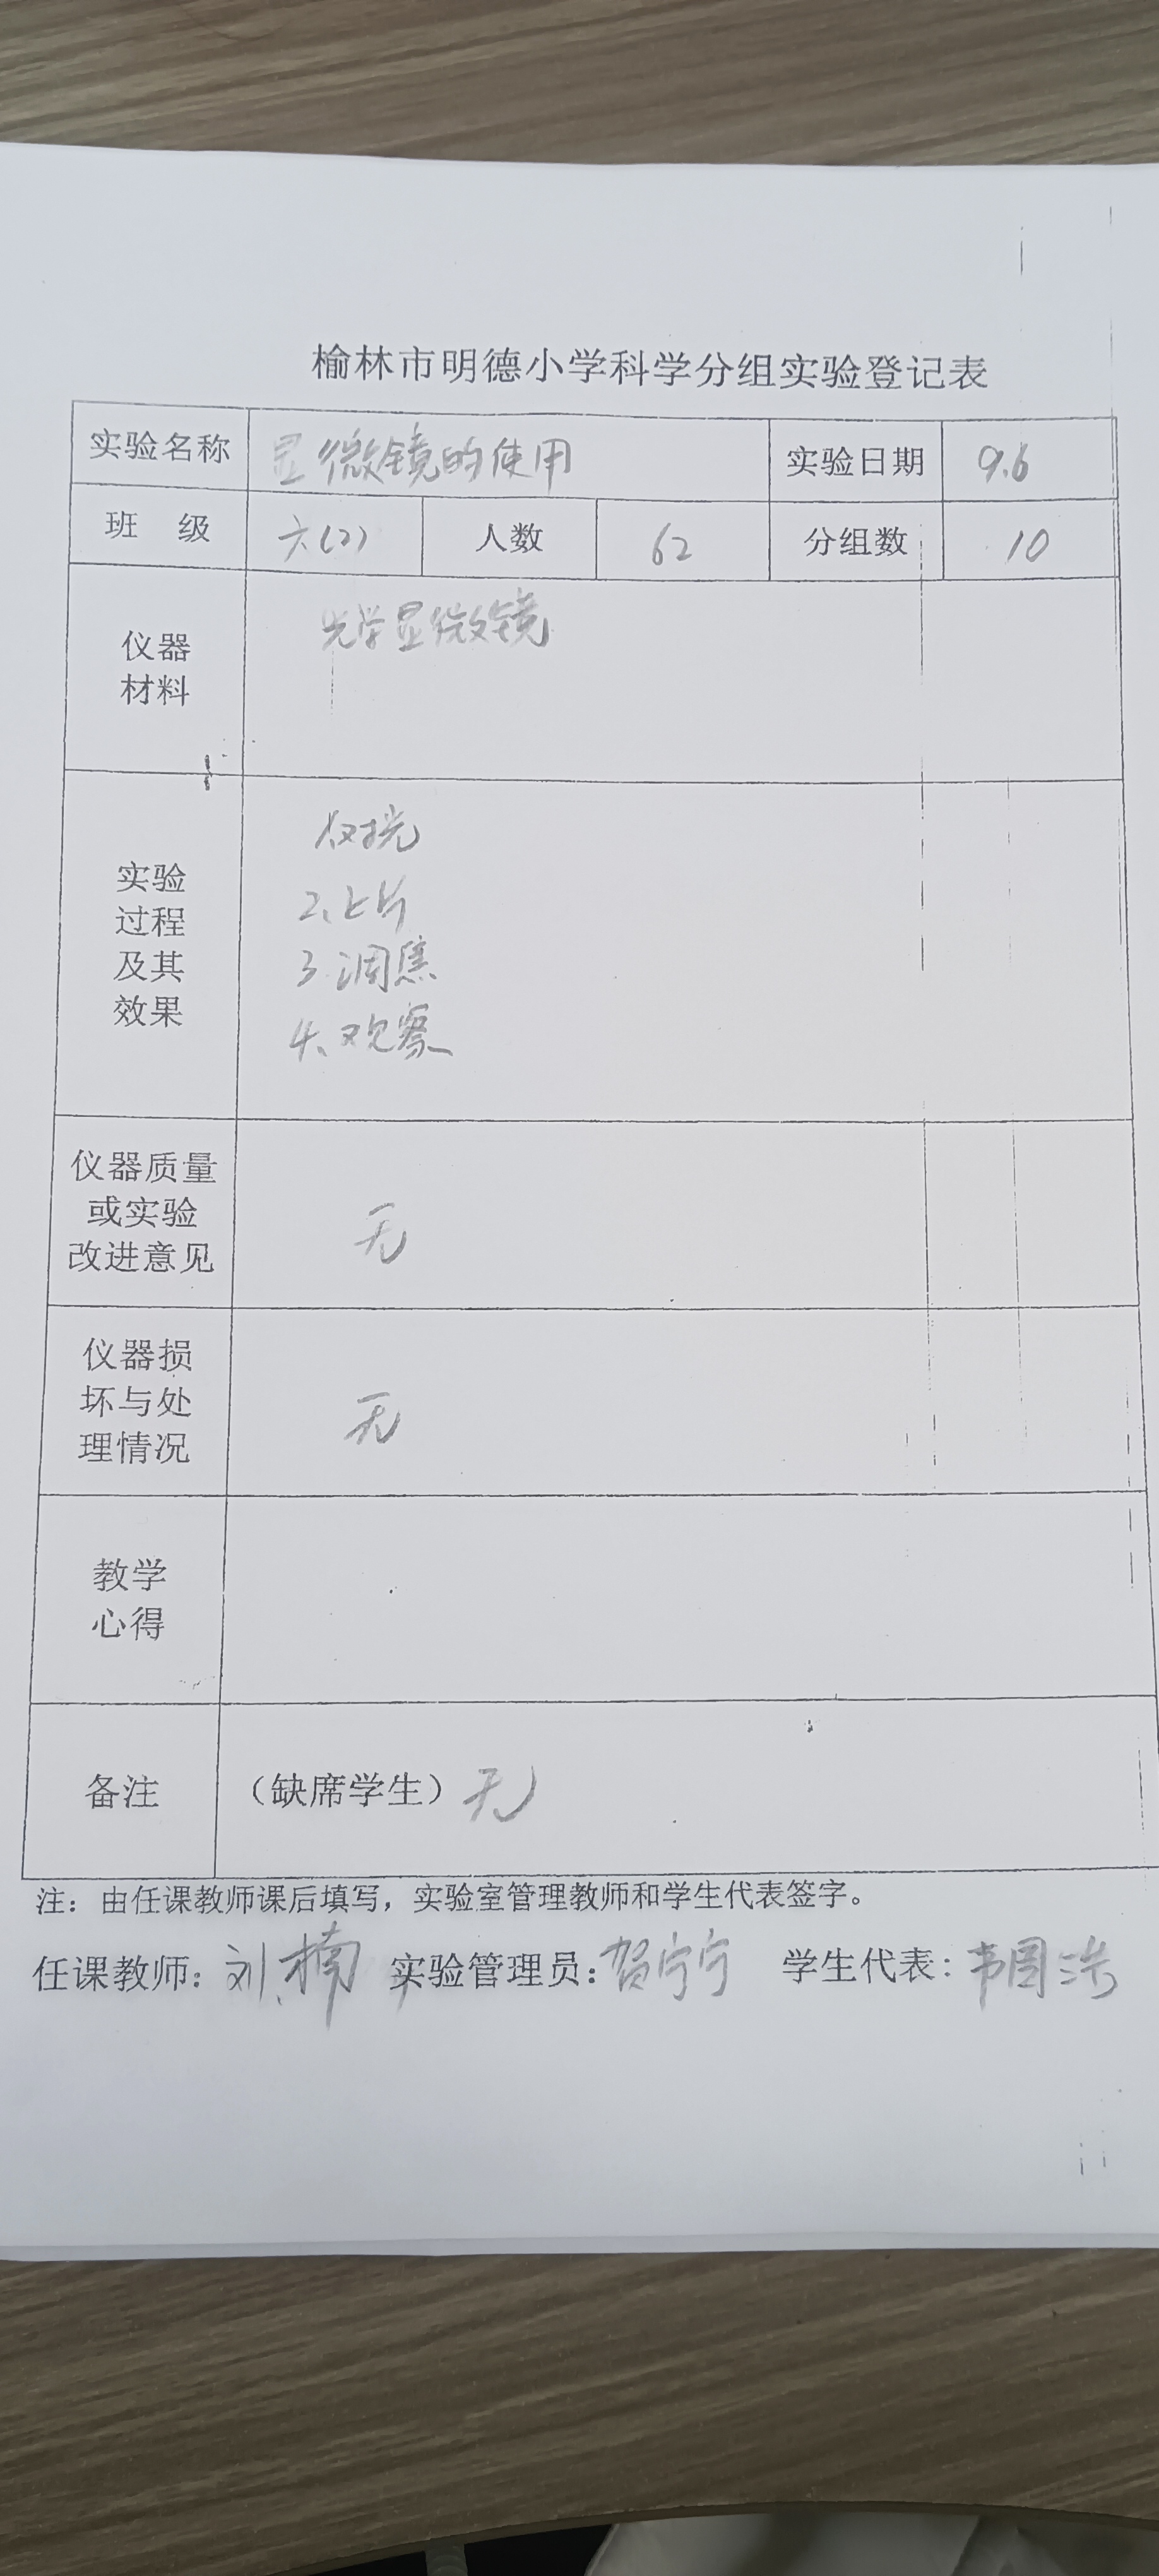 榆林市明德小学科学分组实验登记表
实验名称 显微镜的使用 实验日期 9.6
班 级 六(2) 人数 62 分组数 10
仪器
材料
光学显微镜
实验
过程
及其
效果
对光
2、上片
3.调焦
4、观察
仪器质量
或实验
改进意见
无
仪器损
坏与处
理情况
无
教学
心得
备注 （缺席学生）无
注：由任课教师课后填写，实验室管理教师和学生代表签字。
任课教师：刘楠 实验管理员：贺宁宁 学生代表：